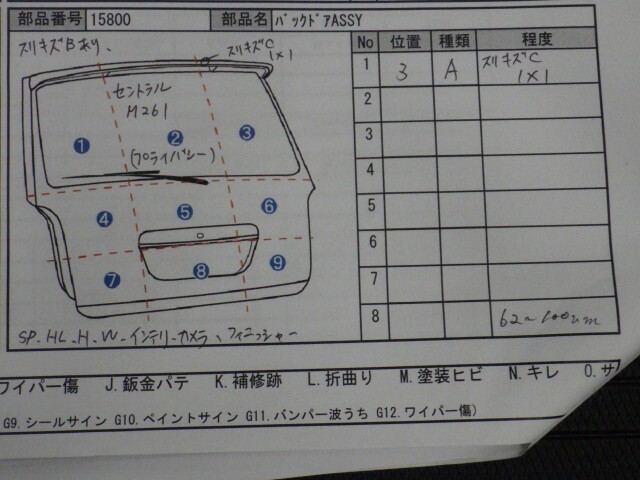 部品番号 15800 部品名 バックドアASSY
スリキズBあり、
スリキズC
1×1
セントラル
M261
(プライバシー)
1 2 3
4 5 6
7 8 9
SP.HL.H.W.インテリ.カメラ、フィニッシャー
No 位置 種類 程度
1 3 A スリキズC
1×1
2
3
4
5
6
7
8 62~100um
ワイパー傷 J.鈑金パテ K.補修跡 L.折曲り M.塗装ヒビ N.キレ O.サ
G9.シールサイン G10.ペイントサイン G11.バンパー波うち G12.ワイパー傷)